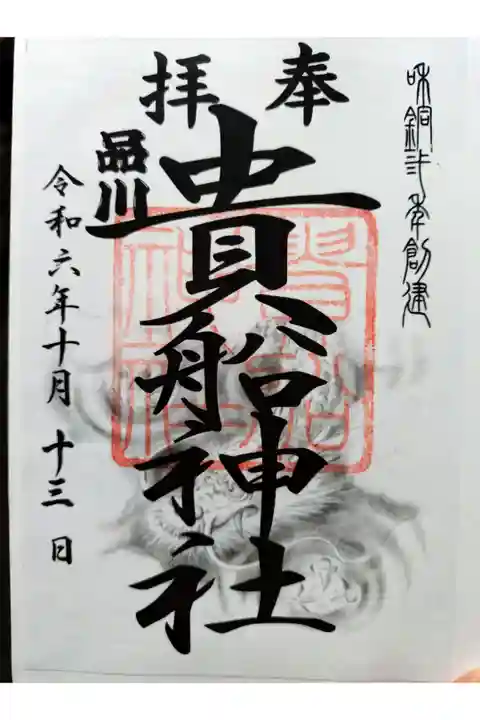 和銅弐年創建
奉拝
品川
貴船神社
令和六年十月十三日